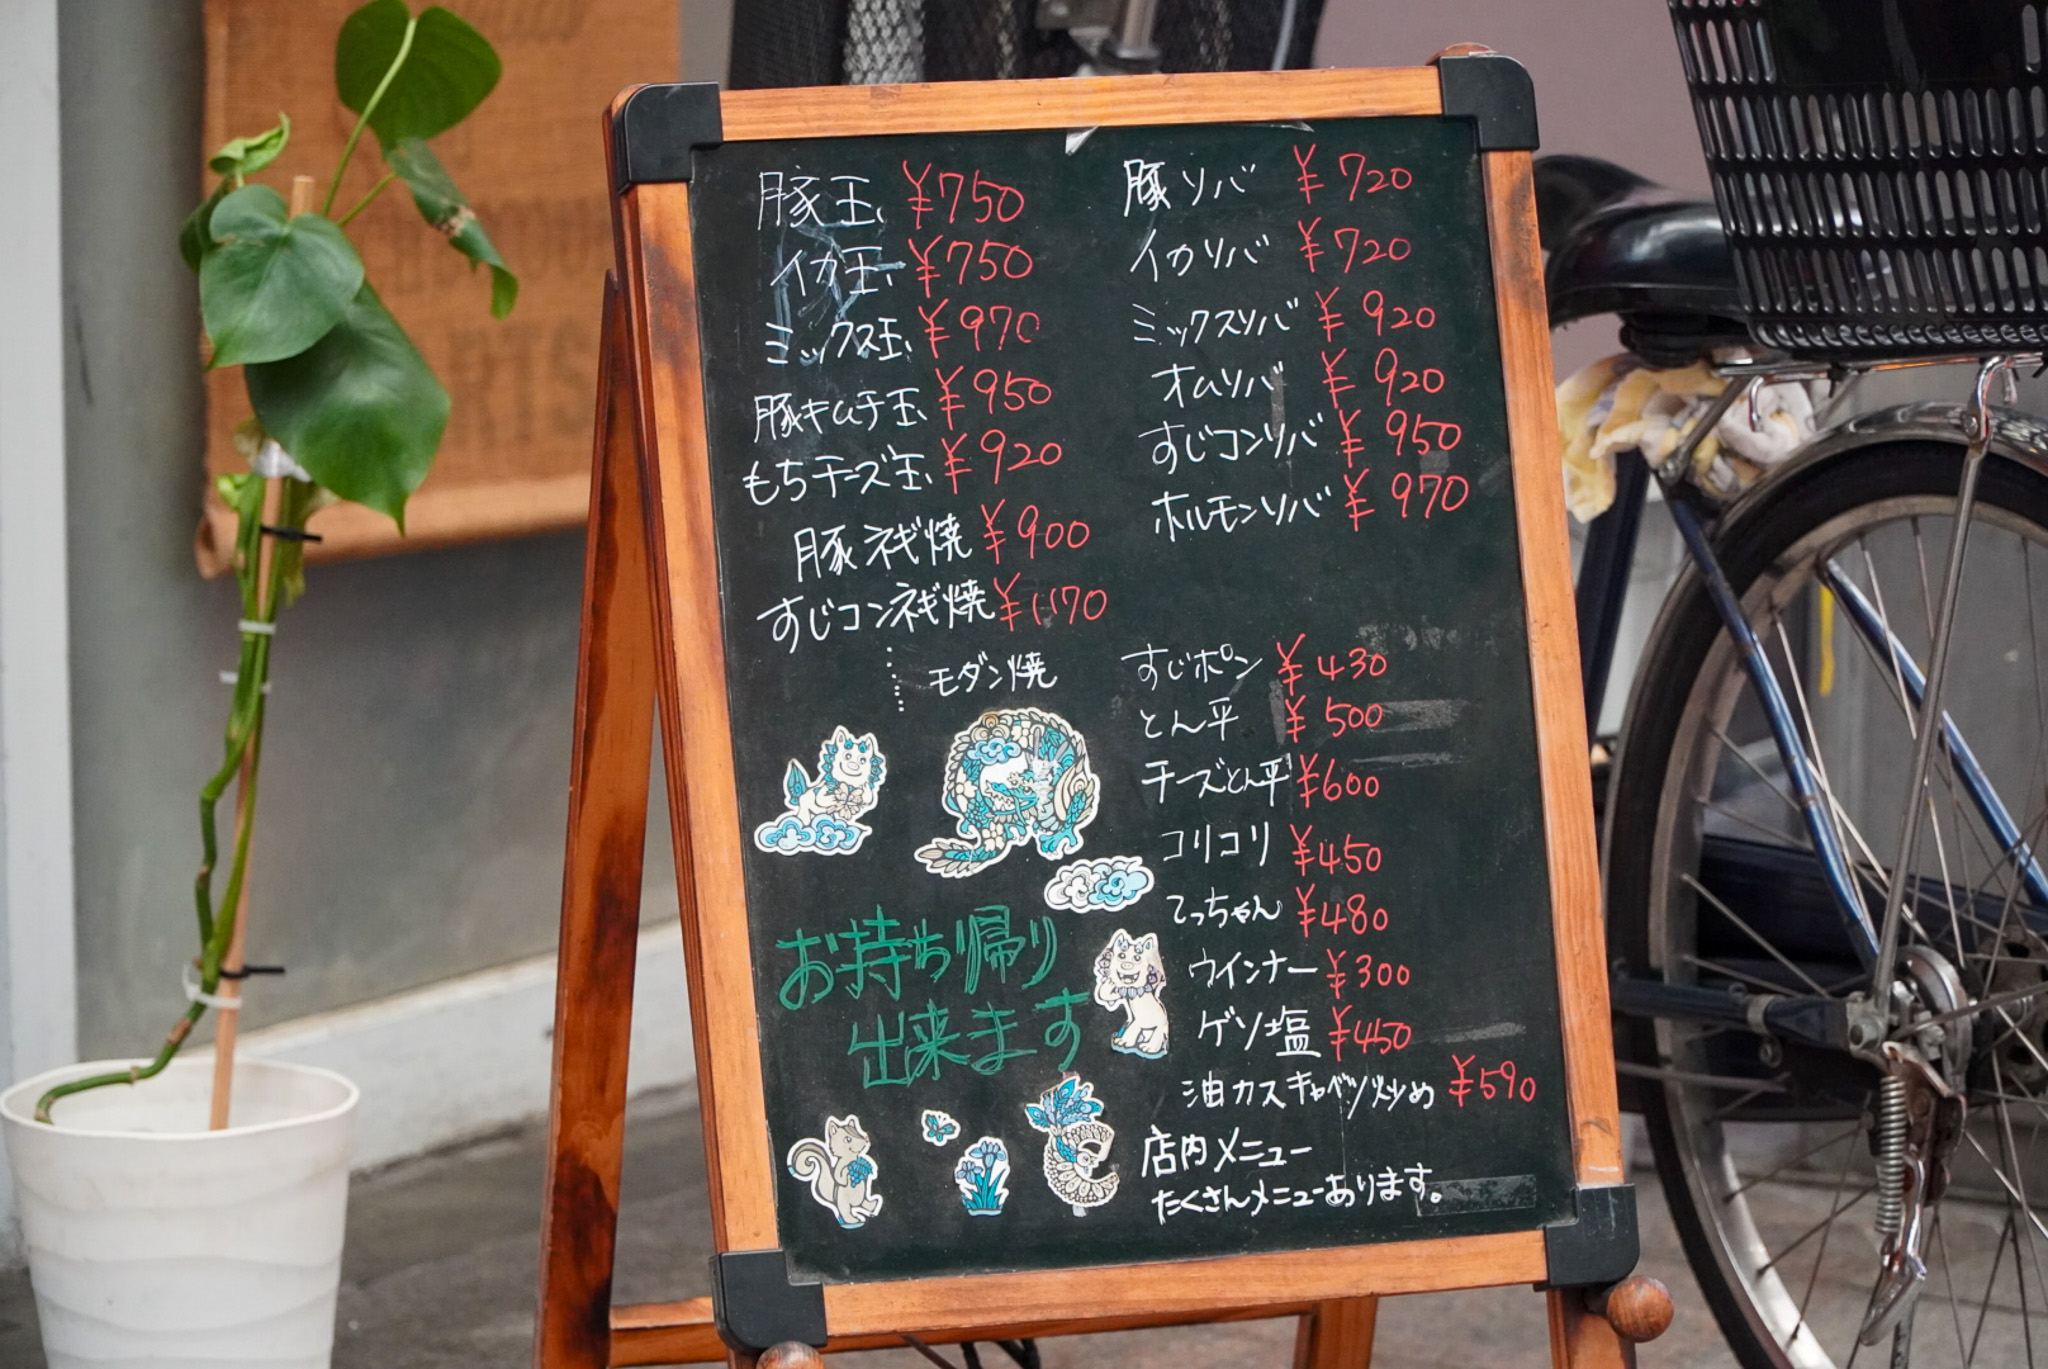 豚玉 ¥750
イカ玉 ¥750
ミックス玉 ¥970
豚キムチ玉 ¥950
もちチーズ玉 ¥920
豚ネギ焼 ¥900
すじコンネギ焼 ¥1170
モダン焼
お持ち帰り
出来ます
豚ソバ ¥720
イカソバ ¥720
ミックスソバ ¥920
オムソバ ¥920
すじコンソバ ¥950
ホルモンソバ ¥970
すじポン ¥430
とん平 ¥500
チーズとん平 ¥600
コリコリ ¥450
てっちゃん ¥480
ウインナー ¥300
ゲソ塩 ¥450
油カスキャベツ炒め ¥590
店内メニュー
たくさんメニューあります。